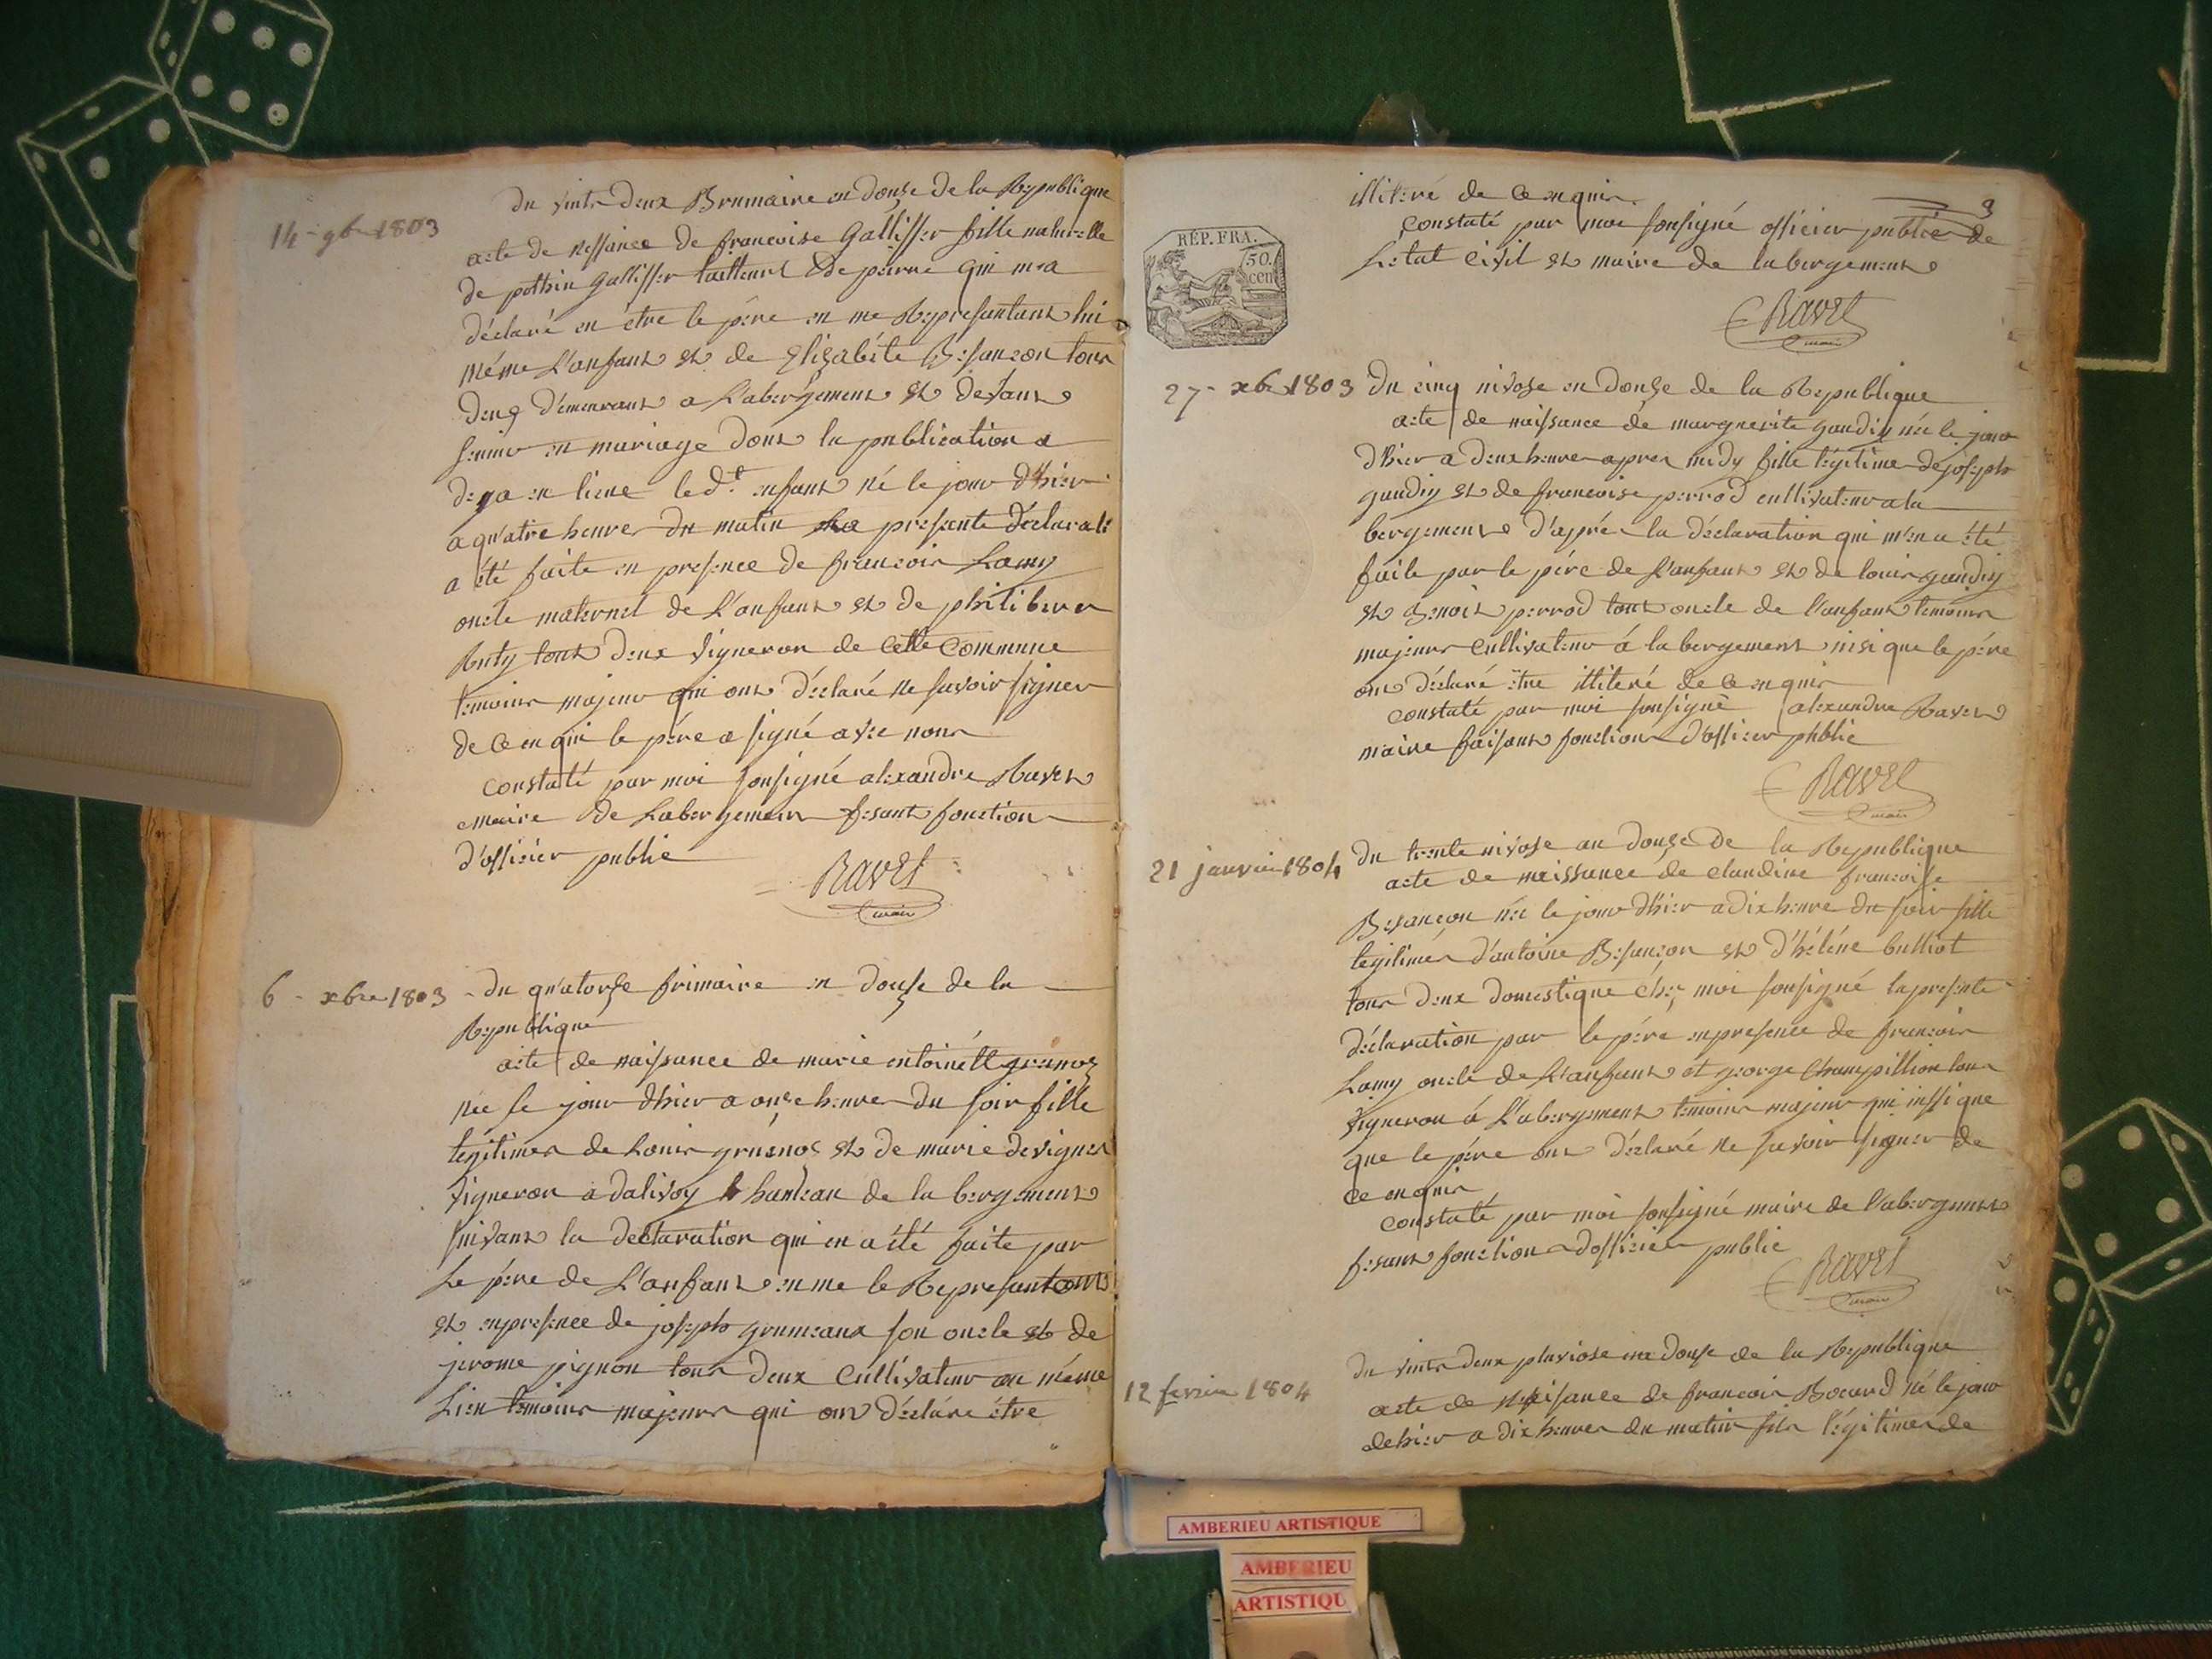 14 - 9bre 1803
du vintr deux Brumaire en douze de la Republique
acte de nessance de francoise Gallisser fille naturelle
de pothin Gallisser tailleur de pierre qui m'a
déclaré en etre le pére en me Representant lui
méme L'anfant et de Elizabéte Besancon tour
deux démeurant a Labergement et devant
s'unir en mariage dont la publication a
deja en lieue le dt. enfant né le jour d'hier
a quatre heures du matin La presente déclarati
a été faite en presence de francois Lamy
oncle maternel de L'anfant et de philiber
Ruty tout deux vigneron de Cette Commune
temoins majeur qui ont déclaré ne savoir signer
de Ce en qui le pére a signé avec nous
Constaté par moi sonsigné alexandre Ravet
maire de Labergement fesant fonction
d'officier public
Ravet
maire
6 - xbre 1803
du quatorze frimaire en douze de la
Republique
acte de naissance de marie entoinétt
née le jour dhier a onze heures du soir fille
legitimes de Louis et de marie devignes
vigneron a dalivoy hameau de la bergement
suivant la declaration qui en a été faite par
Le pére de L'anfant en me le Representant
et en presence de joseph grumeaux son oncle et de
jerome pignon tour deux Cultivateur au méme
Lieu temoins majeurs qui ont déclare étre
3
illiteré de Ce en quir
Constaté par moi sonsigné officier public de
L'etat Civil et maire de labergement
Ravet
maire
RÉP. FRA.
50.
cent
27 - xbre 1803
du cinq nivose en douze de la Republique
acte de naissance de marguerite gaudiy née le jour
d'hier a deux heures apres midy fille légitimes de joseph
gaudiy et de francoise perrod cultivateur a la
bergement d'aprés la déclaration qui m'en a été
faite par le pére de L'anfant et de louis gaudiy
et Benoit perrod tout oncle de l'anfant temoins
majeurs Cultivateur á la bergement insi que le pére
ont déclaré étre illiteré de Ce en quir
Constaté par moi sonsigné alexandre Ravet
maire faisant fonction d'officier public
Ravet
maire
21 janvier 1804
du trente nivose an douze de la Republique
acte de naissance de claudine francoise
Besancon née le jour d'hier a dix heure du soir fille
legitimes d'antoine Besancon et d'héléne bulliot
tour deux domestique chéz moi sonsigné la presente
déclaration par le pére en presence de francois
Lamy oncle de L'anfant et george Champillion tour
vigneron á L'abergement temoins majeur qui inssi que
que le pére ont déclaré ne savoir signer de
Ce en quir
Constaté par moi sonsigné maire de l'abergement
fesant fonction d'officier public
Ravet
maire
12 fevrier 1804
du vintr deux pluviose en douze de la Republique
acte de naisance de francois Bocard né le jour
dehier a dix heures du matin fils légitimes de
AMBERIEU ARTISTIQUE
AMBERIEU
ARTISTIQU